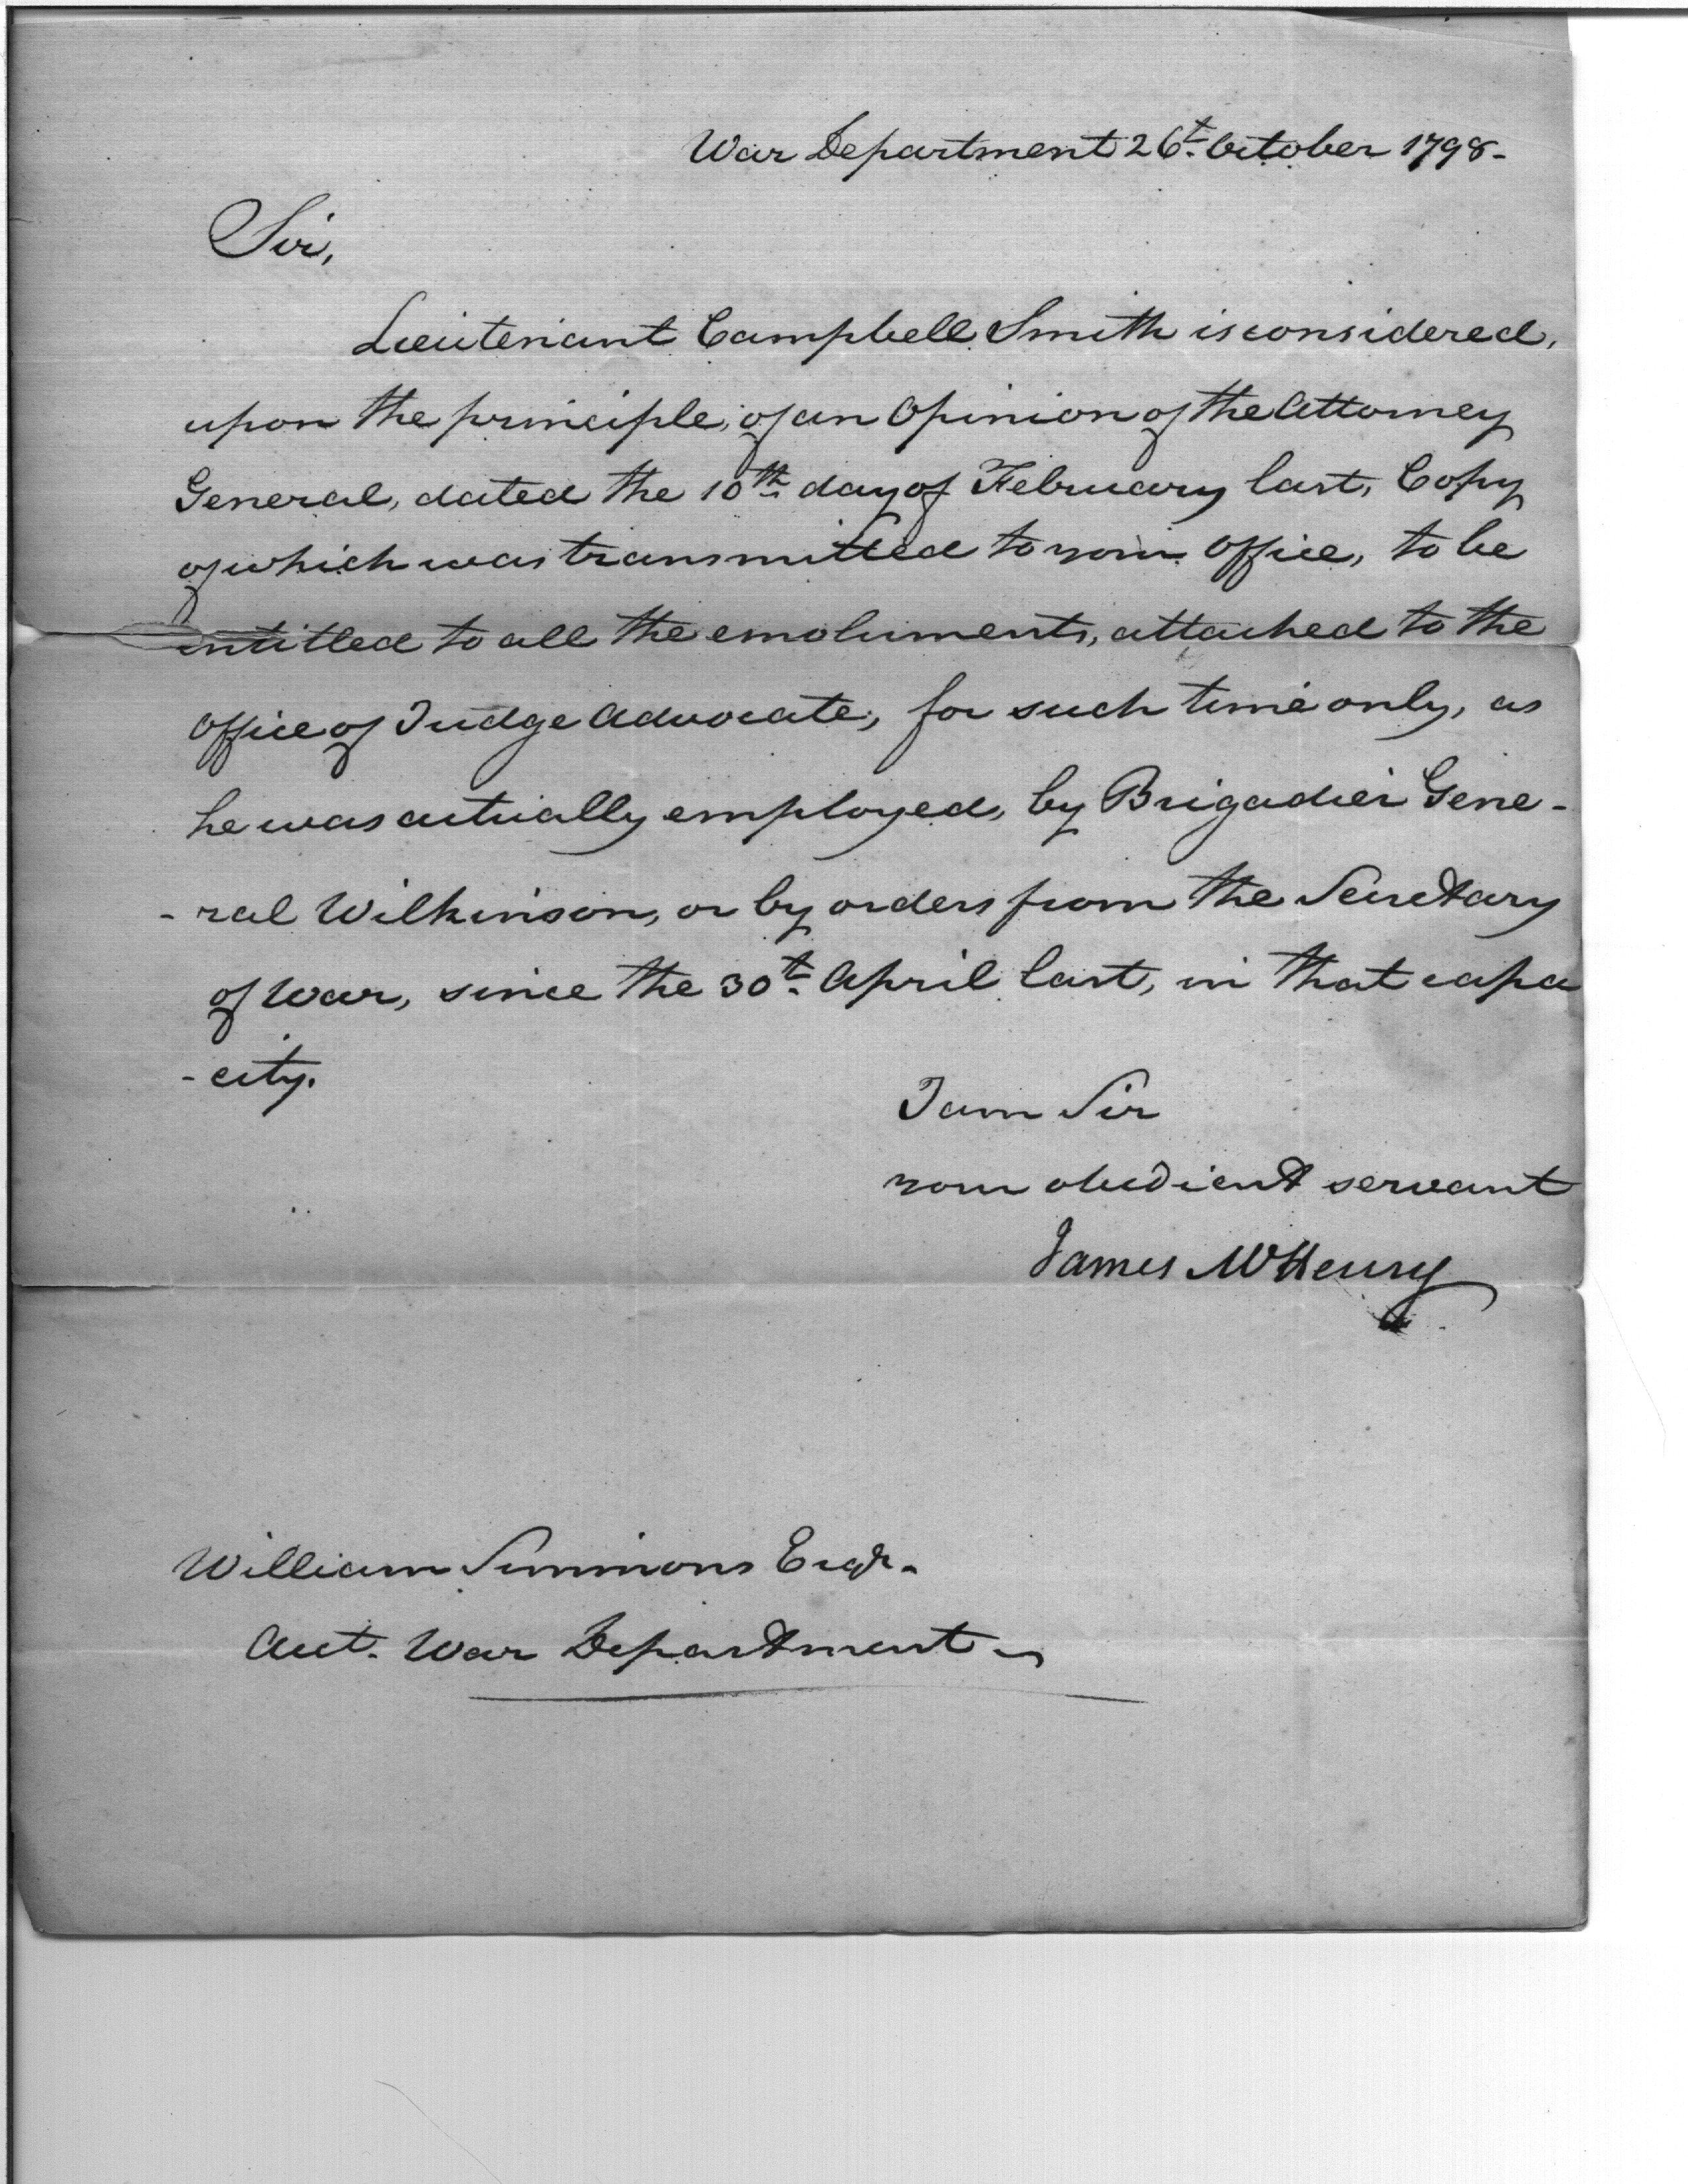 War Department 26t. October 1798-
Sir,
Lieutenant Campbell Smith is considered,
upon the principle, of an Opinion of the Attorney
General, dated the 10th day of February last, Copy
of which was transmitted to your Office, to be
intitled to all the emoluments, attached to the
Office of Judge Advocate, for such time only, as
he was actually employed, by Brigadier Gene-
-ral Wilkinson, or by orders from the Secretary
of War, since the 30t. April last, in that capa
-city.
I am Sir
your obedient servant
James McHenry
William Simmons Esqr.
Acct. War Department